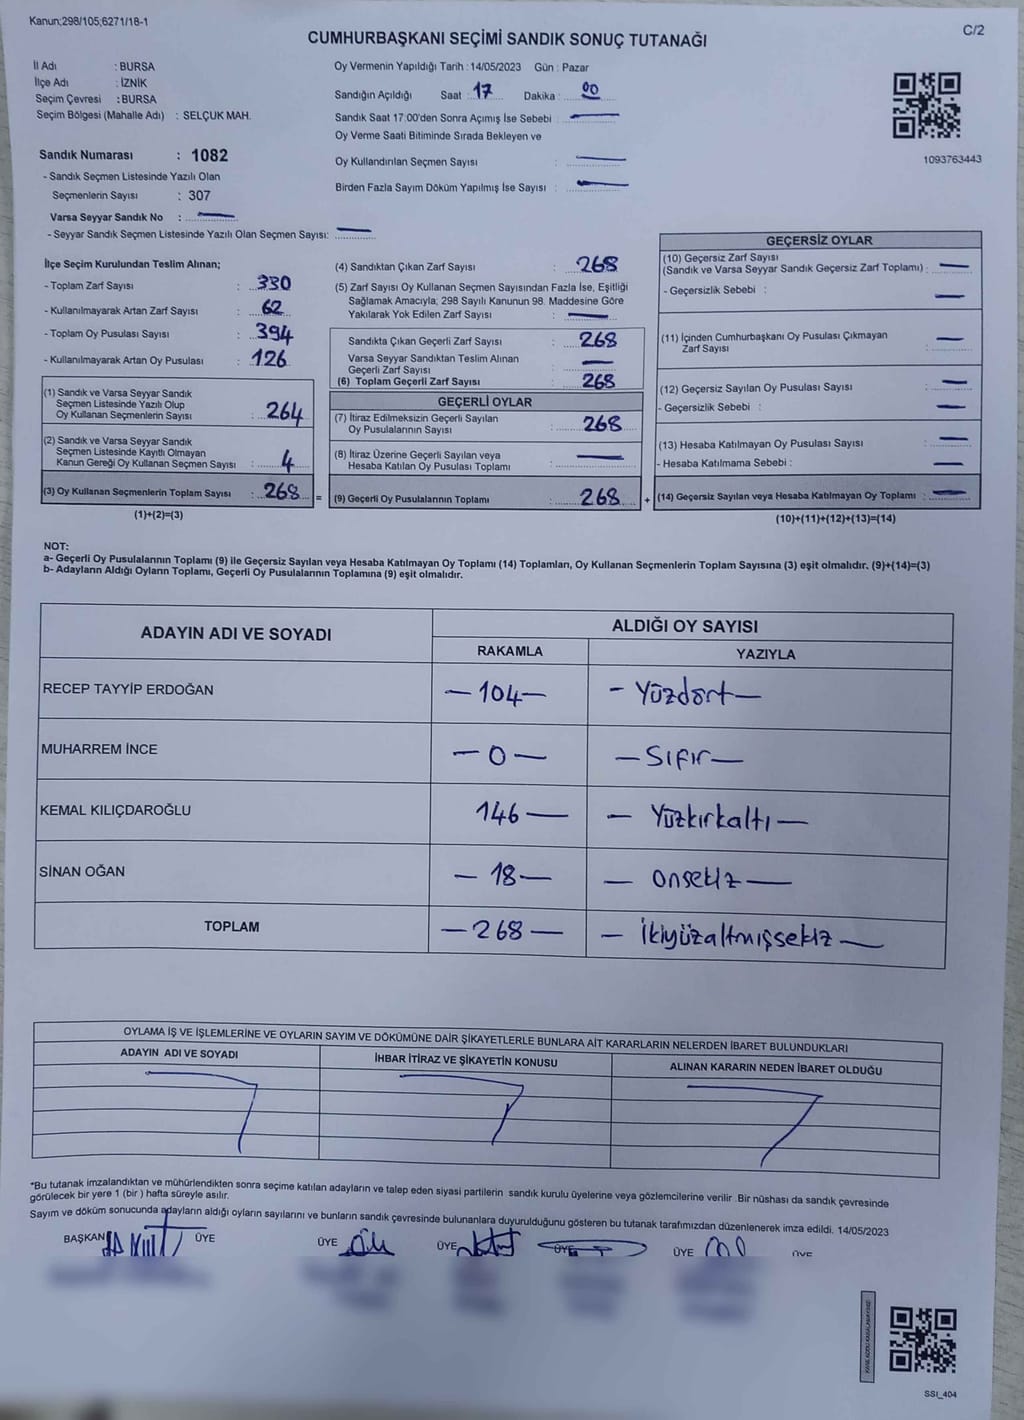 Kanun;298/105;6271/18-1
C/2
CUMHURBAŞKANI SEÇİMİ SANDIK SONUÇ TUTANAĞI
İl Adı : BURSA
İlçe Adı : İZNİK
Seçim Çevresi : BURSA
Seçim Bölgesi (Mahalle Adı) : SELÇUK MAH.
Oy Vermenin Yapıldığı Tarih : 14/05/2023 Gün : Pazar
Sandığın Açıldığı Saat : 17 Dakika : 00
Sandık Saat 17:00'den Sonra Açımış İse Sebebi : —
Oy Verme Saati Bitiminde Sırada Bekleyen ve
Oy Kullandırılan Seçmen Sayısı : —
Birden Fazla Sayım Döküm Yapılmış İse Sayısı : —
1093763443
Sandık Numarası : 1082
- Sandık Seçmen Listesinde Yazılı Olan
Seçmenlerin Sayısı : 307
Varsa Seyyar Sandık No : —
- Seyyar Sandık Seçmen Listesinde Yazılı Olan Seçmen Sayısı: —
İlçe Seçim Kurulundan Teslim Alınan;
- Toplam Zarf Sayısı : 330
- Kullanılmayarak Artan Zarf Sayısı : 62
- Toplam Oy Pusulası Sayısı : 394
- Kullanılmayarak Artan Oy Pusulası : 126
(1) Sandık ve Varsa Seyyar Sandık
Seçmen Listesinde Yazılı Olup
Oy Kullanan Seçmenlerin Sayısı : 264
(2) Sandık ve Varsa Seyyar Sandık
Seçmen Listesinde Kayıtlı Olmayan
Kanun Gereği Oy Kullanan Seçmen Sayısı : 4
(3) Oy Kullanan Seçmenlerin Toplam Sayısı : 268 =
(1)+(2)=(3)
(4) Sandıktan Çıkan Zarf Sayısı : 268
(5) Zarf Sayısı Oy Kullanan Seçmen Sayısından Fazla İse, Eşitliği
Sağlamak Amacıyla; 298 Sayılı Kanunun 98. Maddesine Göre
Yakılarak Yok Edilen Zarf Sayısı : —
Sandıkta Çıkan Geçerli Zarf Sayısı : 268
Varsa Seyyar Sandıktan Teslim Alınan
Geçerli Zarf Sayısı : —
(6) Toplam Geçerli Zarf Sayısı : 268
GEÇERLİ OYLAR
(7) İtiraz Edilmeksizin Geçerli Sayılan
Oy Pusulalarının Sayısı : 268
(8) İtiraz Üzerine Geçerli Sayılan veya
Hesaba Katılan Oy Pusulası Toplamı : —
(9) Geçerli Oy Pusulalarının Toplamı : 268 +
GEÇERSİZ OYLAR
(10) Geçersiz Zarf Sayısı
(Sandık ve Varsa Seyyar Sandık Geçersiz Zarf Toplamı) : —
- Geçersizlik Sebebi : —
(11) İçinden Cumhurbaşkanı Oy Pusulası Çıkmayan
Zarf Sayısı : —
(12) Geçersiz Sayılan Oy Pusulası Sayısı : —
- Geçersizlik Sebebi : —
(13) Hesaba Katılmayan Oy Pusulası Sayısı : —
- Hesaba Katılmama Sebebi : —
(14) Geçersiz Sayılan veya Hesaba Katılmayan Oy Toplamı : —
(10)+(11)+(12)+(13)=(14)
NOT:
a- Geçerli Oy Pusulalarının Toplamı (9) ile Geçersiz Sayılan veya Hesaba Katılmayan Oy Toplamı (14) Toplamları, Oy Kullanan Seçmenlerin Toplam Sayısına (3) eşit olmalıdır. (9)+(14)=(3)
b- Adayların Aldığı Oyların Toplamı, Geçerli Oy Pusulalarının Toplamına (9) eşit olmalıdır.
ADAYIN ADI VE SOYADI
ALDIĞI OY SAYISI
RAKAMLA YAZIYLA
RECEP TAYYİP ERDOĞAN — 104 — — Yüzdört —
MUHARREM İNCE — 0 — — Sıfır —
KEMAL KILIÇDAROĞLU 146 — — Yüzkırkaltı —
SİNAN OĞAN — 18 — — onsekiz —
TOPLAM — 268 — — İkiyüzaltmışsekiz —
OYLAMA İŞ VE İŞLEMLERİNE VE OYLARIN SAYIM VE DÖKÜMÜNE DAİR ŞİKAYETLERLE BUNLARA AİT KARARLARIN NELERDEN İBARET BULUNDUKLARI
ADAYIN ADI VE SOYADI İHBAR İTİRAZ VE ŞİKAYETİN KONUSU ALINAN KARARIN NEDEN İBARET OLDUĞU
*Bu tutanak imzalandıktan ve mühürlendikten sonra seçime katılan adayların ve talep eden siyasi partilerin sandık kurulu üyelerine veya gözlemcilerine verilir. Bir nüshası da sandık çevresinde
görülecek bir yere 1 (bir ) hafta süreyle asılır.
Sayım ve döküm sonucunda adayların aldığı oyların sayılarını ve bunların sandık çevresinde bulunanlara duyurulduğunu gösteren bu tutanak tarafımızdan düzenlenerek imza edildi. 14/05/2023
BAŞKAN ÜYE ÜYE ÜYE ÜYE ÜYE ÜYE
SSI_404